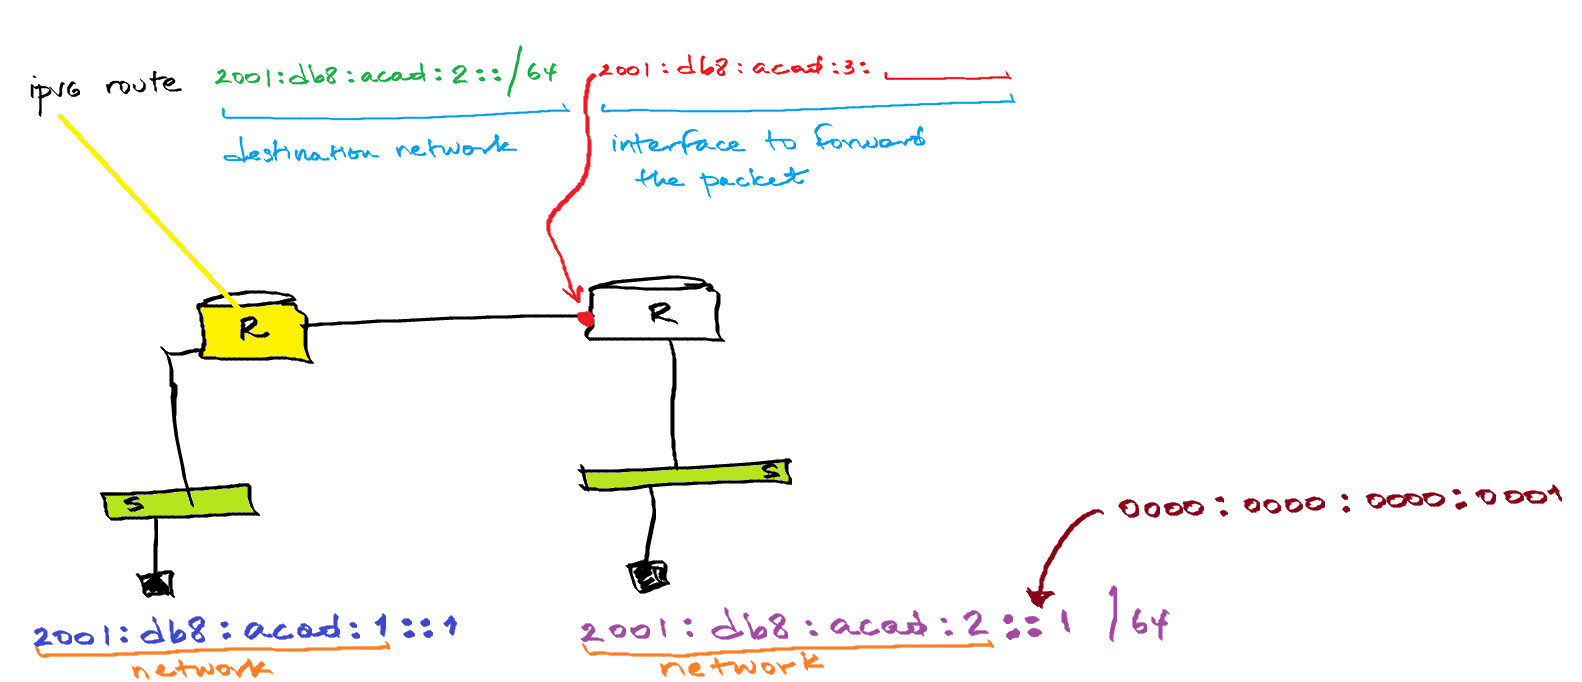 ipv6 route 2001:db8:acad:2::/64 2001:db8:acad:3:
destination network
interface to forward
the packet
R
R
S
S
0000:0000:0000:0001
2001:db8:acad:1::1
2001:db8:acad:2::1 /64
network
network